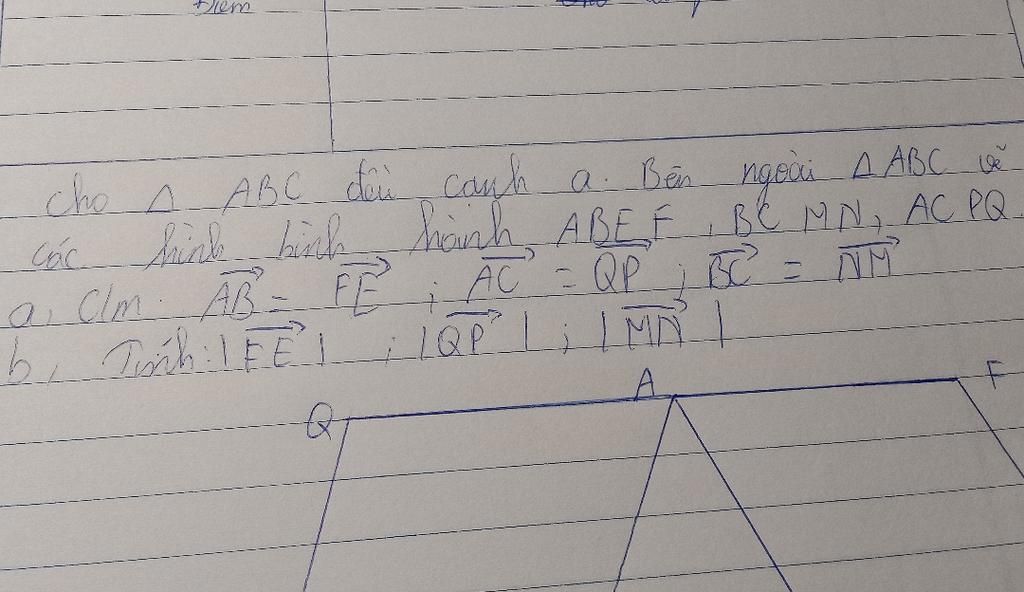 Điểm
cho Δ ABC đều cạnh a. Bên ngoài Δ ABC vẽ
các hình bình hành ABEF, BCMN, ACPQ.
a, C/m: \overrightarrow{AB} = \overrightarrow{FE} ; \overrightarrow{AC} = \overrightarrow{QP} ; \overrightarrow{BC} = \overrightarrow{NM}
b, Tính: |\overrightarrow{FE}| ; |\overrightarrow{QP}| ; |\overrightarrow{MN}|
Q A F